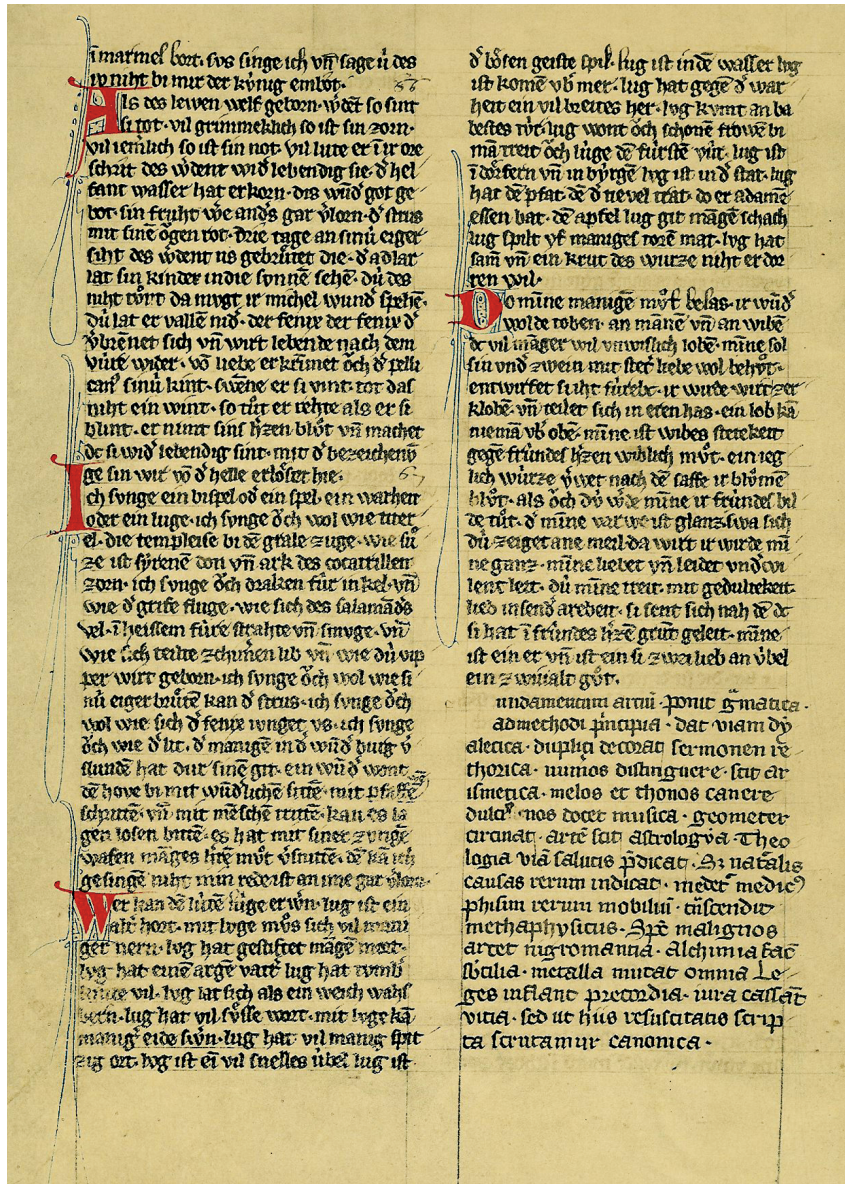 ī marmel hort. svs singe ich vn̄ sage ú des
iv niht bi mir der kv́nig enbot.
Als des lewen welf geborn. ẃdēt so sint
si tot. vil grimmeklich so ist sin zorn.
vil iemlich so ist sin not. vil lute er ī ir ore
schrit des ẃdent wid̕ lebendig sie. d̕ hel
fant wasser hat erkorn. dis wūd̕ got ge
bot. sin fruht ẃe and̕s gar v̕lorn. d̕ strus
mit sinē ōgen rot. drie tage an sinú eiger
siht des ẃdent us gebrv́tet die. d̕ adlar
lat sin kinder in die sv́nnē sehē. dú des
niht tv́rt da mvgt ir michel wund̕ spehē.
dú lat er vallē nid̕. der fenix der fenix d̕
v̕brēnet sich vn̄ wirt lebende nach dem
vúre wider. vō liebe erkrīmet ȯch d̕ pelli
canˢ sinú kint. swēne er si vint tot das
niht ein wint. so tůt er rehte als er si
blint. er nimt sins h̕zen blůt vn̄ machet
dc si wid̕ lebendig sint. mit d̕ bezeichenv̄
ge sin wir vō d̕ helle erlöset hie.
Ich svnge ein bispel od̕ ein spel. ein warheit
oder ein luge. ich svnge ȯch wol wie titer
el. die templeise bi dē grale zuge. wie sů
ze ist sv́renē don vn̄ ark des cocatrillen
zorn. ich svnge ȯch draken fúr in kel. vn̄
wie d̕ grife fluge. wie sich des salamād̕s
vel. ī heissem fúre strahte vn̄ smvge. vn̄
wie sich teilte zchimen lib vn̄ wie dú vip
per wirt geborn. ich svnge ȯch wol wie si
nú eiger brútē kan d̕ strus. ich svnge ȯch
wol wie sich d̕ fenix iunget vs. ich svnge
ȯch wie d̕ lit. d̕ manigē in d̕ wūd̕ burg v̕
slundē hat dur sinē git. ein wūd̕ wont
dē hove bi mit wūd̕lichē sittē. mit pfaffē
schrittē. vn̄ mit mēsche trittē. kan es la
gen losen bittē. es hat mit siner zvngē
wafen māges h̕rē můt v̕snittē. dē kā ich
gesingē niht min rede ist an ime gar v̕lorn.
Wer kan dē lútē lúge erẃn. lug ist ein
alt̕ hort. mit lvge můs sich vil mani
ger nern. lvg hat gestiftet māgē mort.
lvg hat einē argē vat̕ lug hat tvmb̕
kinde vil. lvg lat sich als ein weich wahs
bern. lug hat vil sv́sse wort. mit lvge kā
manig̕ eide sẃn. lug hat vil manig spit
zig ort. lvg ist eī vil snelles úbel lug ist
d̕ bösen geiste spil. lug ist in dē wasser lvg
ist komē vb̕ mer. lug hat gegē d̕ war
heit ein vil breites her. lvg kvmt an ba
bestes tv́r. lug wont ȯch schonē frowē bi
mā treit ȯch lúge dē fúrstē vúr. lug ist
ī dörfern vn̄ in bv́rgē lvg ist in d̕ stat. lug
hat dē pfat. dē d̕ tievel trat. do er adamē
essen bat. dē apfel lug git māgē schach
lug spilt vf maniges torē mat. lvg hat
sam̄ vn̄ ein krut des wurze niht erdor
ren wil.
Do mīne manigē můt besas. ir wūd̕
wolde toben. an mānē vn̄ an wibē
dc vil māger wil vnwislich lobē. mīne sol
sin vnd̕ zwein mit stet̕ liebe wol behůt.
entwirfet si iht fúrebc. ir wirde wirt zer
klobē. vn̄ teilet sich in eren has. ein lob kā
niemā vb̕ obē. mīne ist wibes sterekeit
gegē frúndes h̕zen wiblich můt. ein ieg
lich wúrze v́wet nach dē saffe ir blůmē
blůt. als ȯch dv́ ẃde mīne ir frúndes bil
de tůt. d̕ mīne varwe ist glanz. swa sich
dú zeiget ane meil da wirt ir wirde mī
ne ganz. mīne liebet vn̄ leidet vnd̕ wi
lent lert. dú mīne treit. mit gedultekeit.
lieb in send̕ arebeit. si sent sich nah dē dc
si hat ī frúndes h̕zē grůt geleit. mīne
ist ein er vn̄ ist ein si zwei lieb an v́bel
ein zwiualt gůt.
undamentum artiū. ponit g̃matica.
ad methodi p̃ncipia. dat viam dy
alectica. duplici decorat sermonen re
thorica. numos distinguere. scit ar
ismetica. melos et thonos canere
dulciˢ. nos docet musica. geometer
circinat. artē scit astrologya. Theo
logia viā salutis p̃dicat. Sȝ natālis
causas rerum indicat. medet̃ medicꝰ
phisim rerum mobiliū. t̃nscendit
methaphysicus. Spē malignos
artet nigromantia. Alchimia facit
sv́tilia. metalla mutat omnia Le
ges inflant precordia. iura cassāt
vitia. sed ut hiis resuscitatis scrip
ta scrutamur canonica.